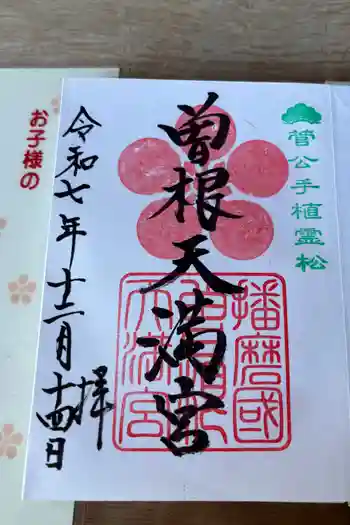 菅公手植霊松
曽根天満宮
播磨國
曽根
天満宮
令和七年十二月十四日
拝
お子様の